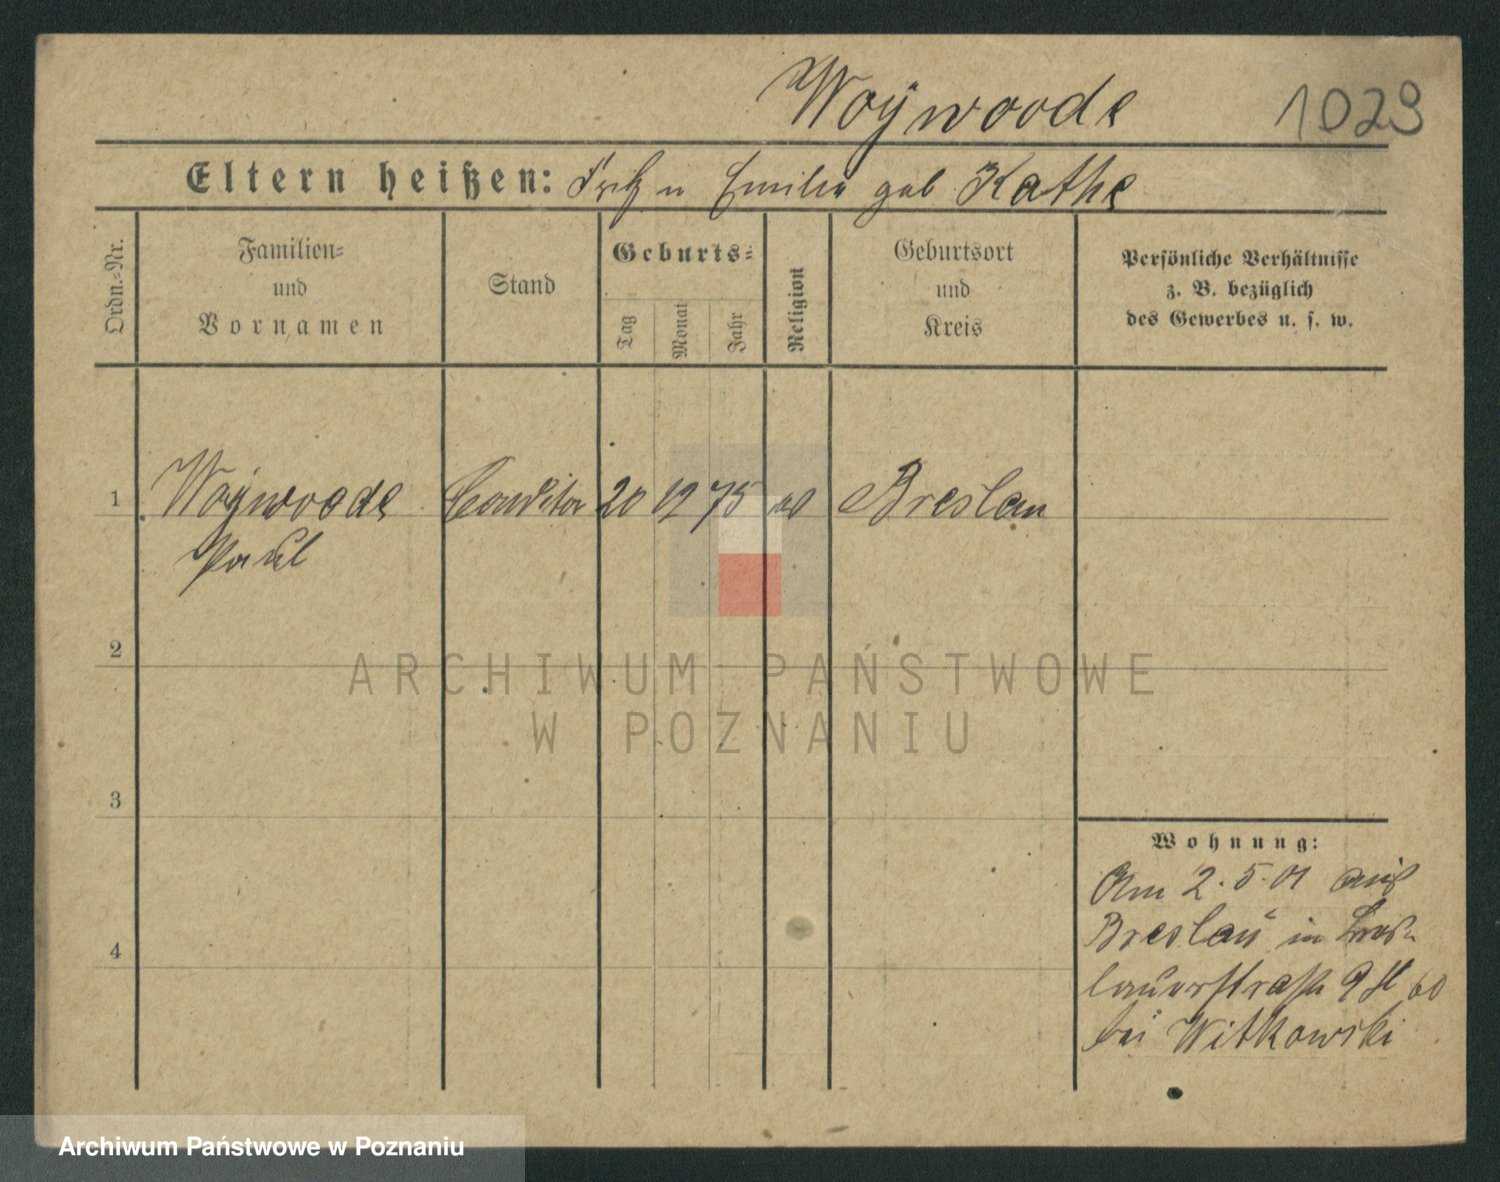 Woÿwoode 1029
Eltern heißen: Fritz u Emilie geb Kathe
Ordn.-Nr.
Familien-
und
Vornamen
Stand
Geburts-
Tag
Monat
Jahr
Religion
Geburtsort
und
Kreis
Persönliche Verhältnisse
z. B. bezüglich
des Gewerbes u. s. w.
1 Woÿwoode Conditor 20 12 75 Breslau
Paul
2
ARCHIWUM PAŃSTWOWE
W POZNANIU
3
Wohnung:
Am 2.5.01 aus
Breslau in Bres-
4
lauerstraße 9
bei Witkowski
Archiwum Państwowe w Poznaniu